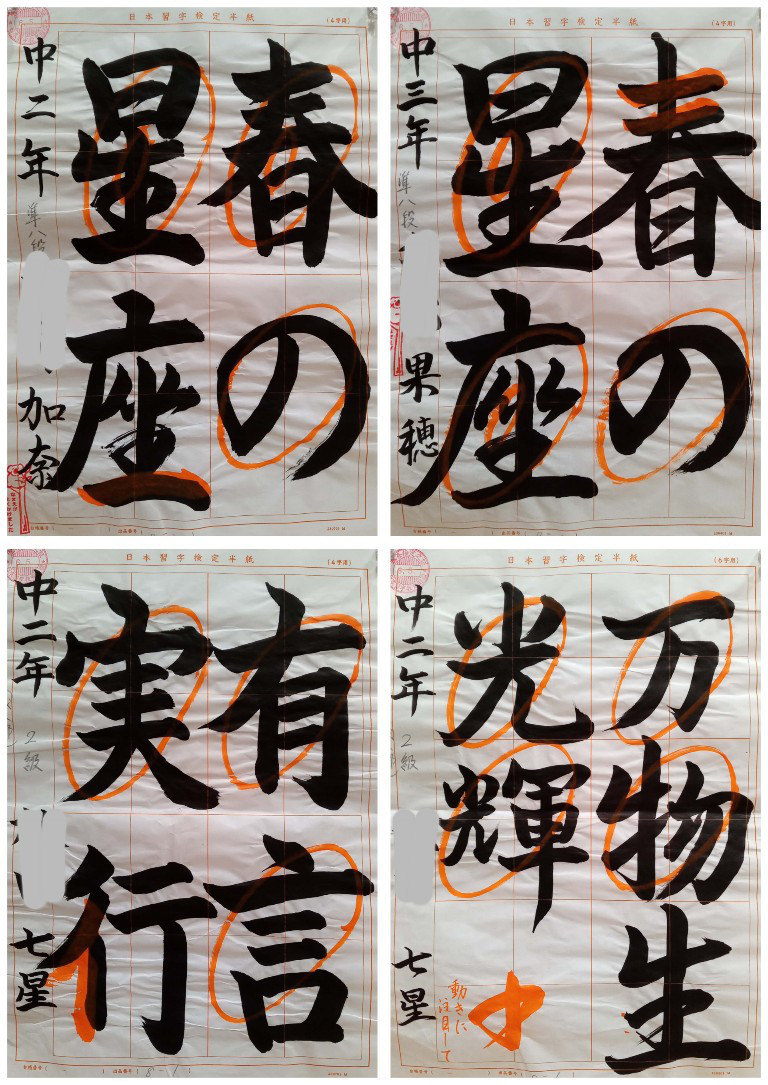 日本習字検定半紙
(4字用)
春の
星座
中二年
準八段
加奈
日本習字検定半紙
(4字用)
春の
星座
中三年
準八段
果穂
日本習字検定半紙
(4字用)
有言
実行
中二年
2級
七星
日本習字検定半紙
(6字用)
万物生
光輝
中二年
2級
七星
動きに
注目して